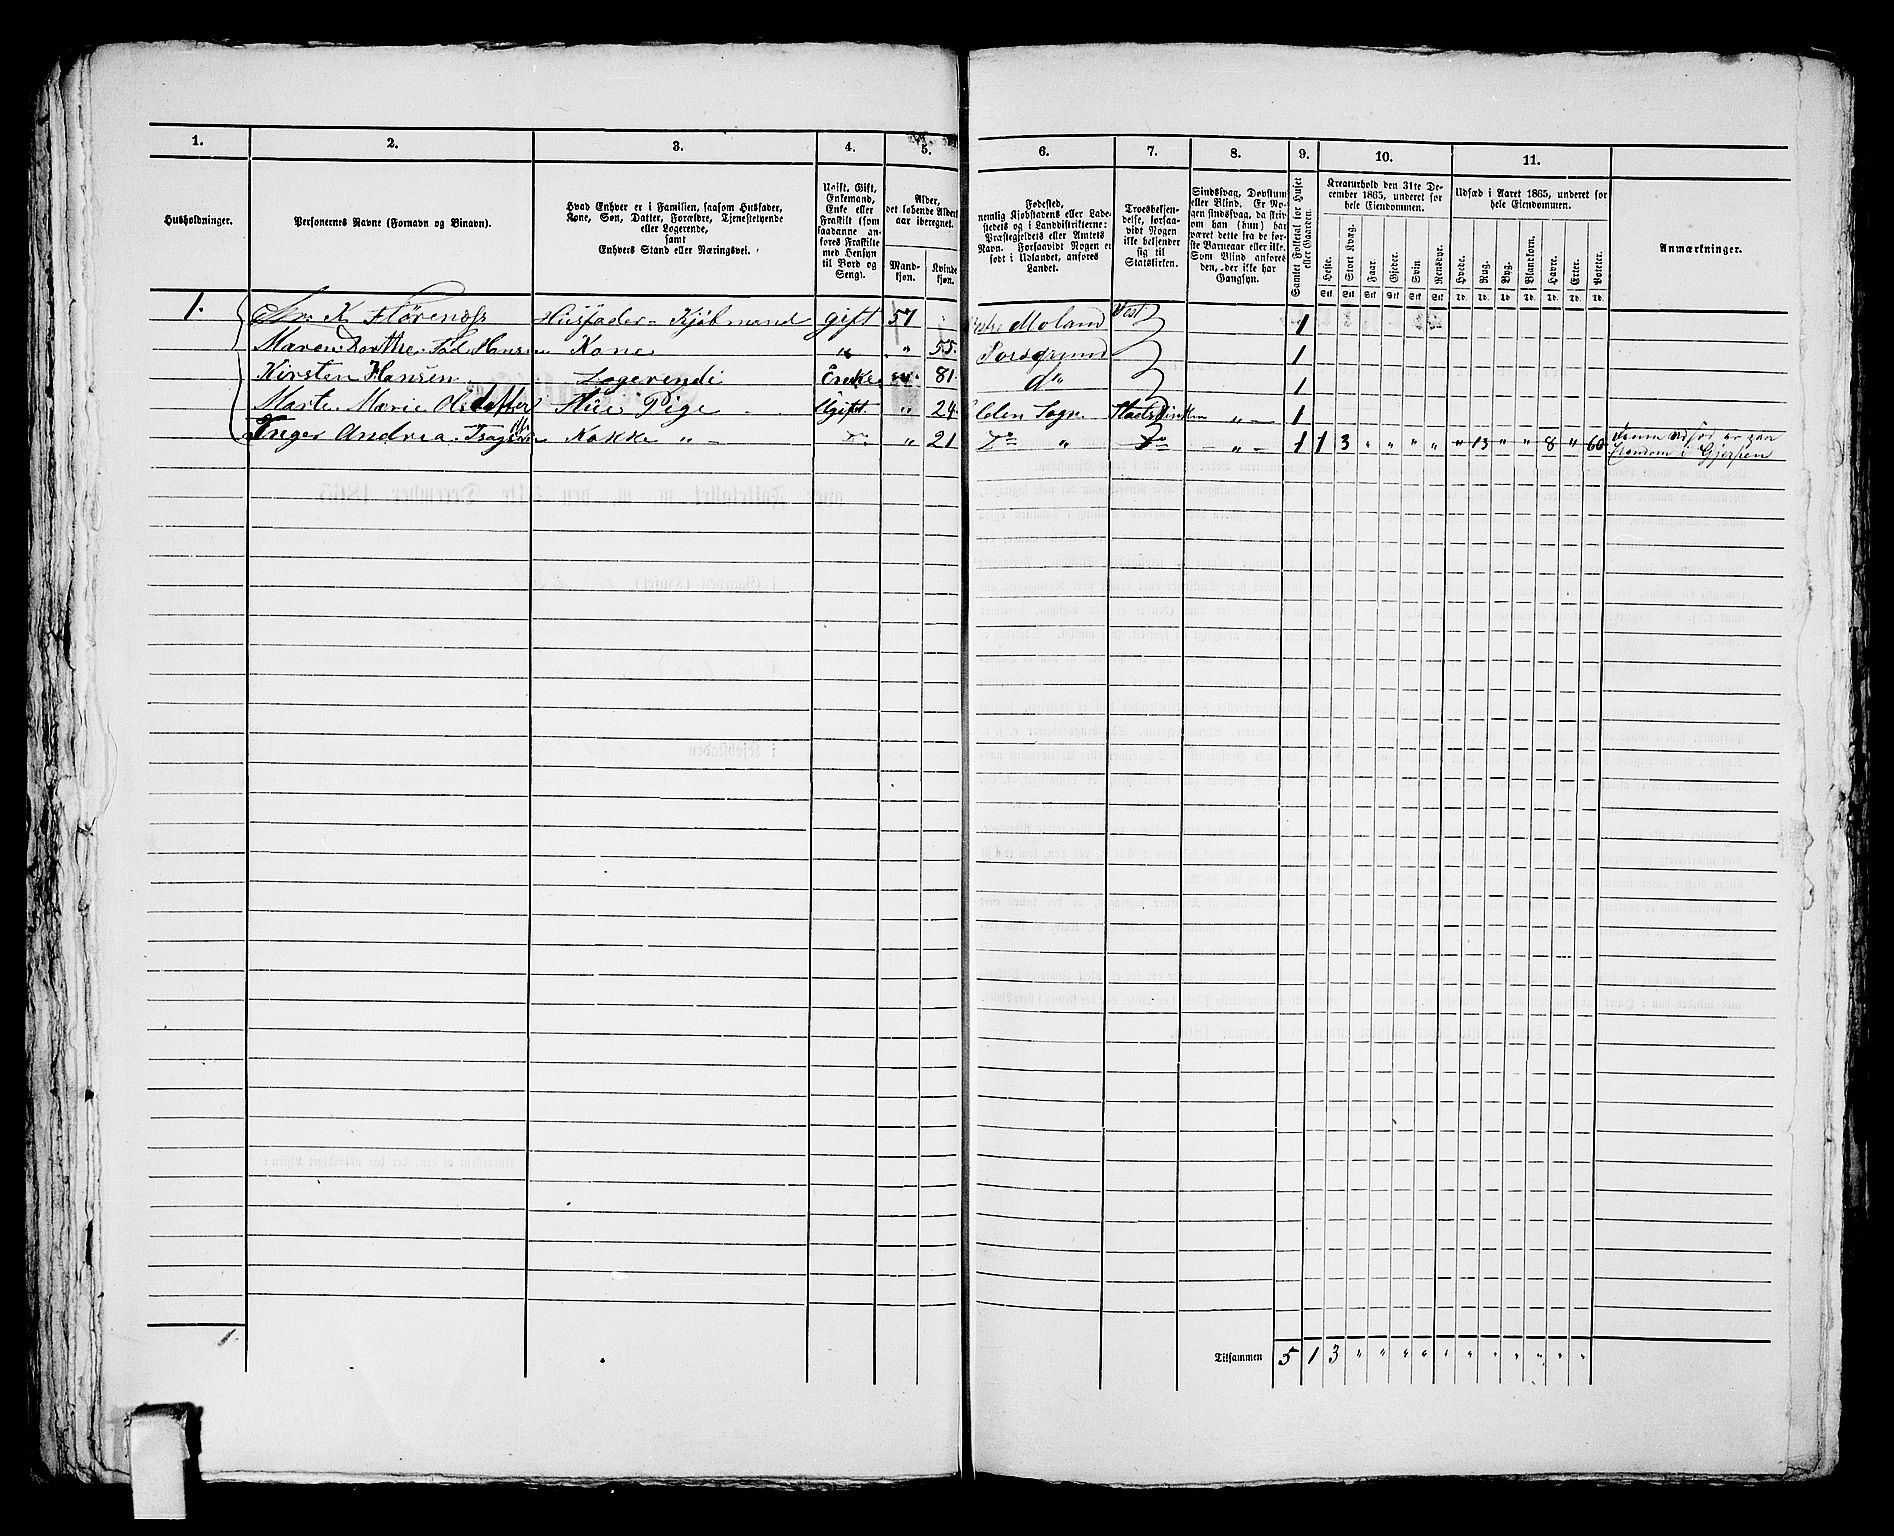 1. 2. 3. 4. 5. 6. 7. 8. 9. 10. 11.
Husholdninger.
Personernes Navne (Fornavn og Binavn).
Hvad Enhver er i Familien, saasom Husfader,
Kone, Søn, Datter, Forældre, Tjenestetyende
eller Logerende,
samt
Enhvers Stand eller Næringsvei.
Ugift, Gift,
Enkemand,
Enke eller
Fraskilt (som
saadanne an-
føres Fraskilte
med Hensyn
til Bord og
Seng).
Alder,
det løbende Alders-
aar iberegnet.
Mand-
kjøn.
Kvinde-
kjøn.
Fødested,
nemlig Kjøbstadens eller Lade-
stedets og i Landdistrikterne:
Præstegjeldets eller Amtets
Navn. Forsaavidt Nogen er
født i Udlandet, anføres
Landet.
Troesbekjen-
delse, forsaa-
vidt Nogen
ikke bekjender
sig til
Statskirken.
Sindssvag, Døvstum
eller Blind. Er No-
gen sindssvag, da skriv
om han (hun) har
været dette fra de før-
ste Barneaar eller ikke.
Som Blind anføres
den, der ikke har
Gangsyn.
Samlet Folketal for Huset
eller Gaarden.
Kreaturhold den 31te De-
cember 1865, underet for
hele Eiendommen.
Heste. Stort Kvæg. Faar. Gjeder. Svin Rensdyr.
Stk Stk Stk Stk Stk Stk
Udsæd i Aaret 1865, underet for
hele Eiendommen.
Hvede. Rug. Byg. Blankorn. Havre. Erter. Poteter.
Td. Td. Td. Td. Td. Td. Td.
Anmærkninger.
1. K Husfader - Kjøbmand gift 57 Moland 1
Maren Dorthe Kone " " 55. 1
Kirsten Hansen Logerende Enke 81. d" 1
Marte Marie Olsdatter Pige Ugift. " 24. Sogn Statskirken " 1
Inger Andrea Kokke " " 21 D° " D° " 1 1 3 " " " " " 13 " " 8 " 60
i Gjerpen
1.
Tilsammen 5 1 3 " " " " " " " " " " "